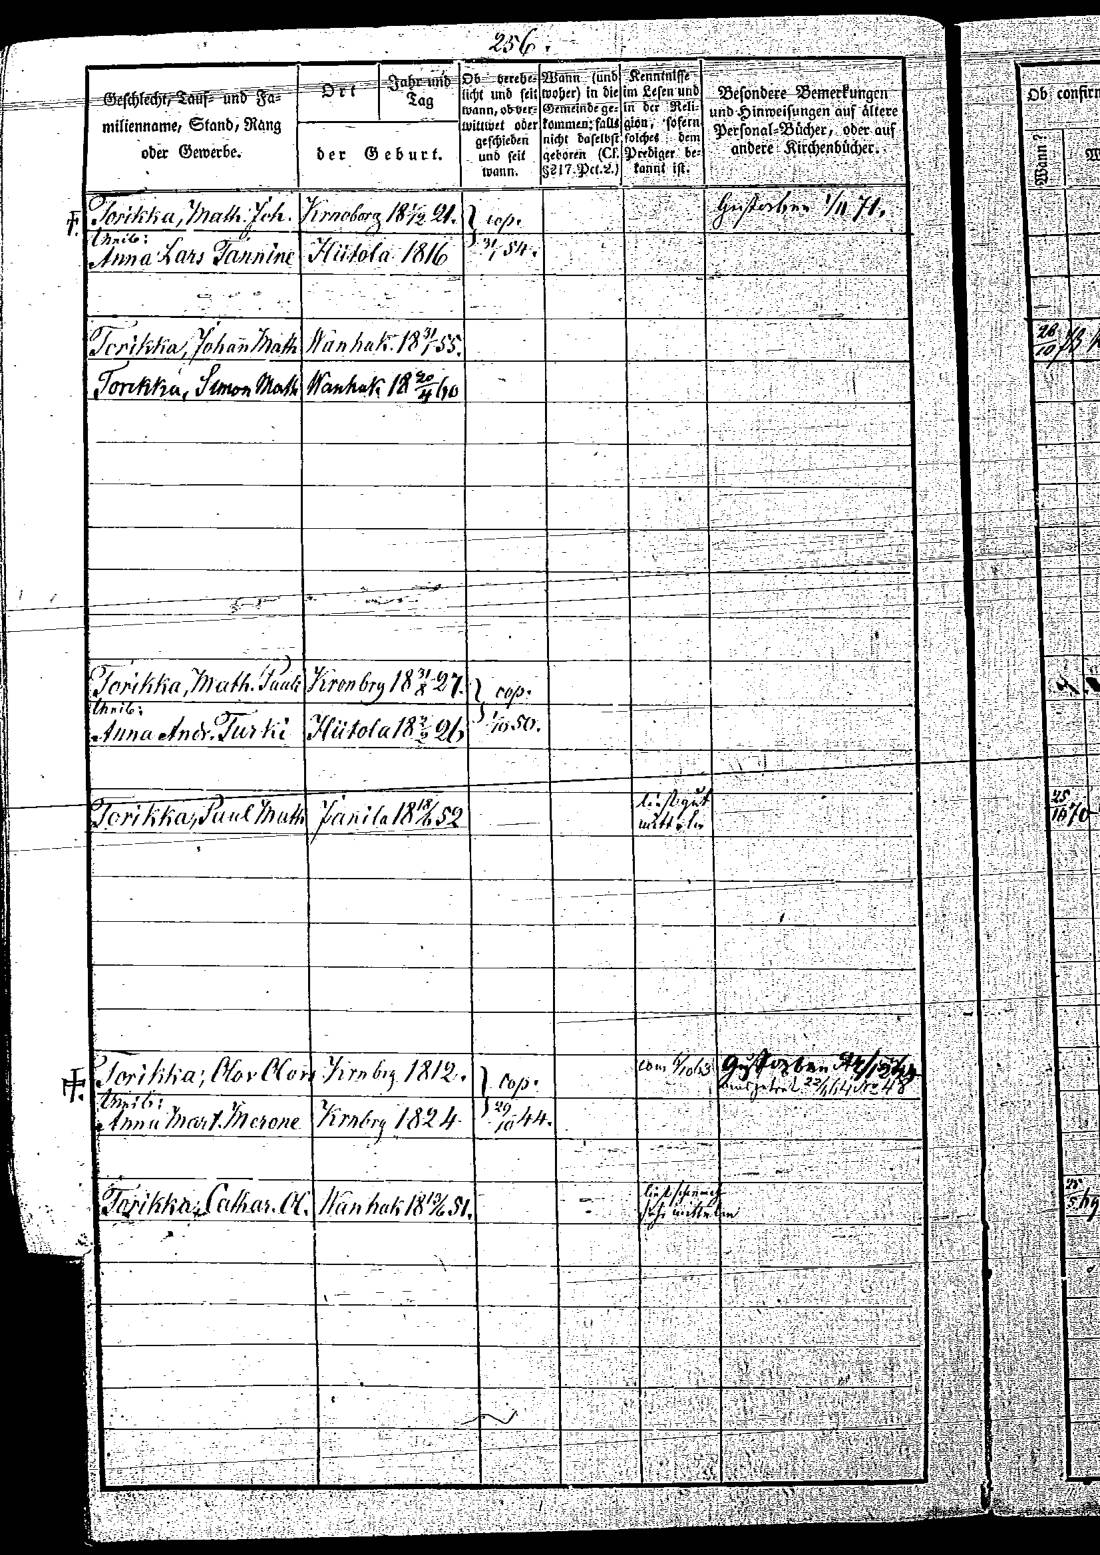 256.
Geschlecht, Tauf- und Fa-
milienname, Stand, Rang
oder Gewerbe.
Ort
Jahr und
Tag
der Geburt.
Ob verehe-
licht und seit
wann, ob ver-
wittwet oder
geschieden
und seit
wann.
Wann (und
woher) in die
Gemeinde ge-
kommen; falls
nicht daselbst
geboren (Cf.
§217. Pct. 2.)
Kenntnisse
im Lesen und
in der Reli-
gion, sofern
solches dem
Prediger be-
kannt ist.
Besondere Bemerkungen
und Hinweisungen auf ältere
Personal-Bücher, oder auf
andere Kirchenbücher.
Ob confirm
Wann?
Torikka, Math. Joh. Krnoborg 18 1/12 21. cop. Gestorben 1/11 71.
Weib:
Anna Lars Tannine Hiitola 1816 31/1 54.
Torikka, Johan Math Wanhak. 18 31/1 55.
Torikka, Simon Math Wanhak 18 20/4 60
Torikka, Math. Pauls Kronbrg 18 31/8 27. cop.
Weib:
Anna Andr. Turki Hiitola 18 2/2 26 1/10 50.
Torikka, Paul Math Janila 52 liest gut
25/10 70
Torikka, Olov Olovs Krnbrg 1812. cop. Gestorben
Weib:
Anna Mart. Merone Krnbrg 1824 29/10 44.
Torikka, Cathar. Ol. Wanhak 51. liest schwach